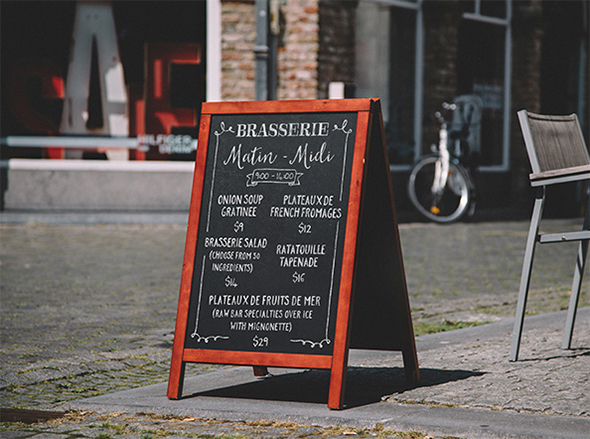 SALE
HILFIGER
DENIM
BRASSERIE
Matin - Midi
9:00 - 16:00
ONION SOUP
GRATINEE
$9
PLATEAUX DE
FRENCH FROMAGES
$12
BRASSERIE SALAD
(CHOOSE FROM 30
INGREDIENTS)
$14
RATATOUILLE
TAPENADE
$16
PLATEAUX DE FRUITS DE MER
(RAW BAR SPECIALTIES OVER ICE
WITH MIGNONETTE)
$29